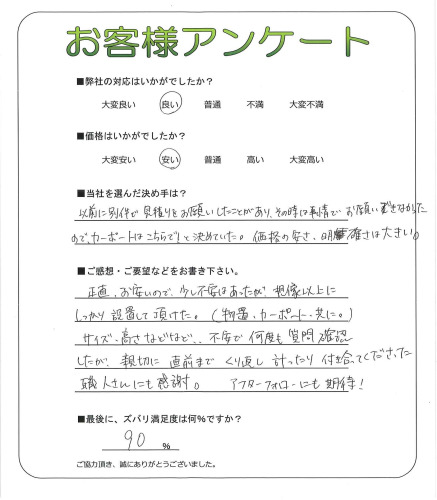 お客様アンケート
■弊社の対応はいかがでしたか？
大変良い 良い 普通 不満 大変不満
■価格はいかがでしたか？
大変安い 安い 普通 高い 大変高い
■当社を選んだ決め手は？
以前に別件で見積りをお願いしたことがあり、その時は事情でお願いできなかった
ので、カーポートはこちらで！と決めていた。価格の安さ、明確さは大きい。
■ご感想・ご要望などをお書き下さい。
正直、お安いので、少し不安はあったが、想像以上に
しっかり設置して頂けた。(物置、カーポート、共に。)
サイズ・高さなどなど、、不安で何度も質問確認
したが、親切に直前までくり返し計ったり付き合ってくださった
職人さんにも感謝。 アフターフォローにも期待！
■最後に、ズバリ満足度は何%ですか？
90 %
ご協力頂き、誠にありがとうございました。